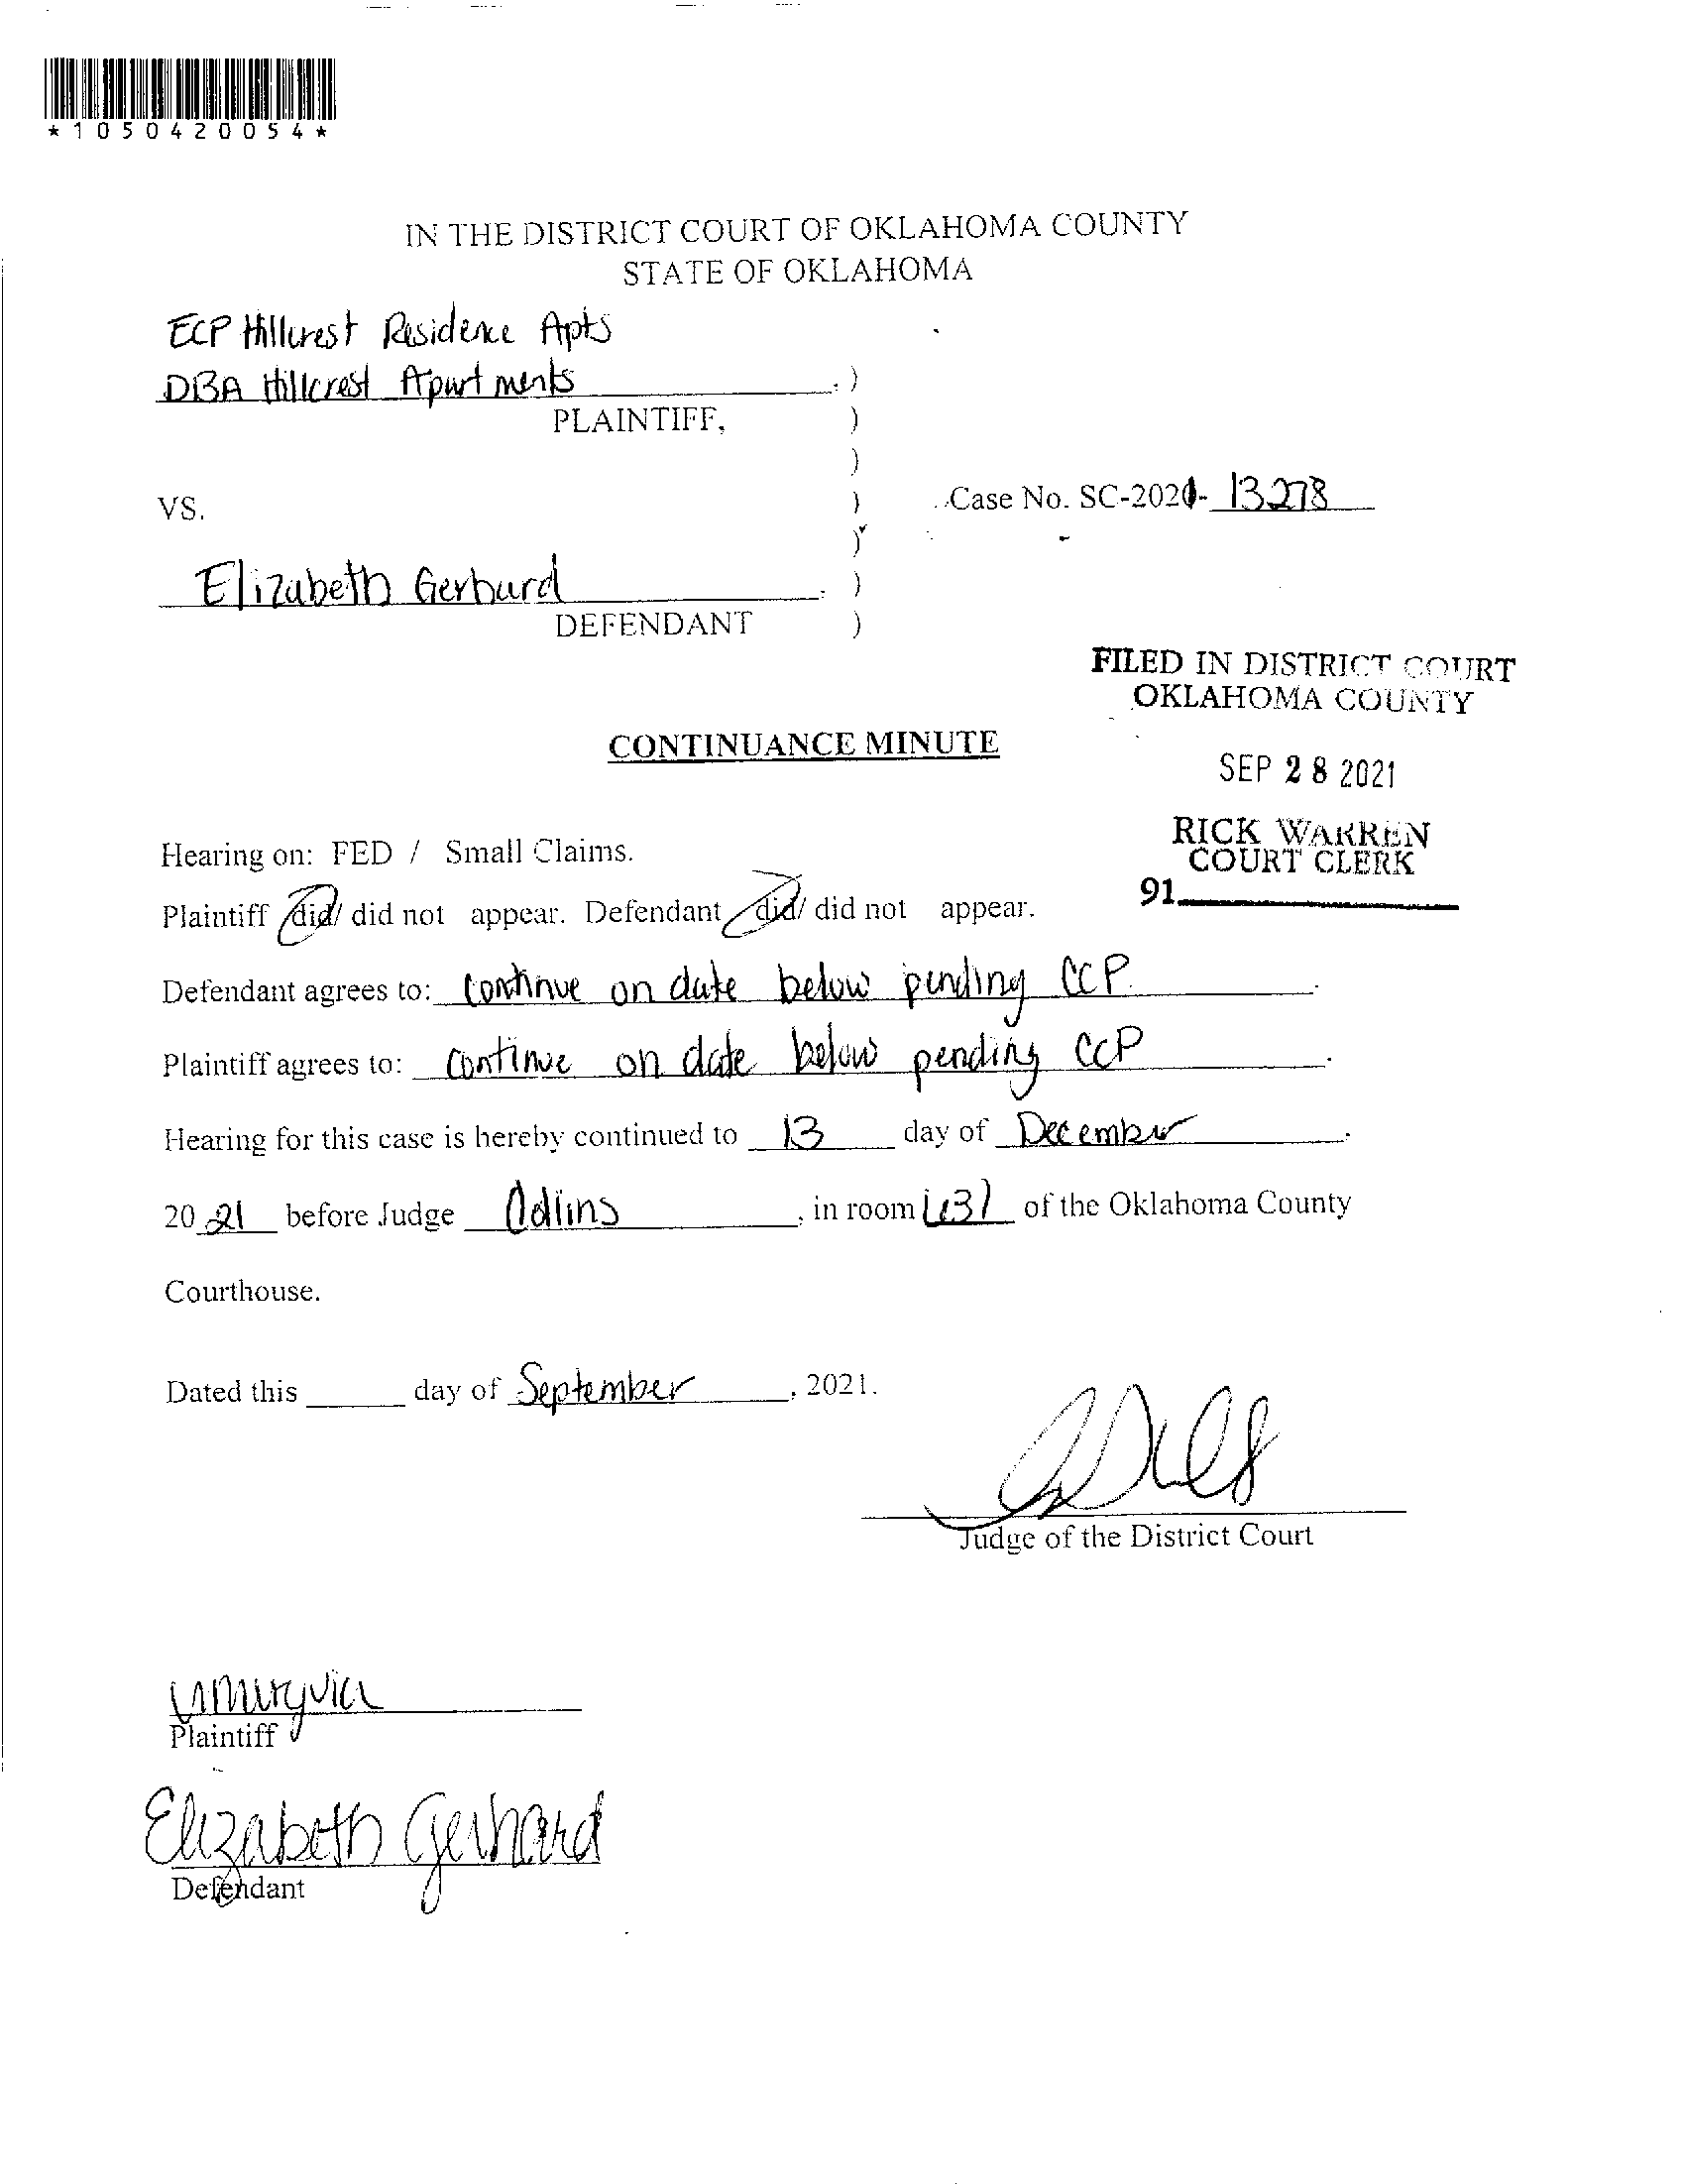 *1050420054*
IN THE DISTRICT COURT OF OKLAHOMA COUNTY
STATE OF OKLAHOMA
ECP Hillcrest Residence Apts
DBA Hillcrest Apartments, )
PLAINTIFF, )
)
VS. ) Case No. SC-2021-13278
)
Elizabeth Gerhard, )
DEFENDANT )
FILED IN DISTRICT COURT
OKLAHOMA COUNTY
CONTINUANCE MINUTE
SEP 28 2021
RICK WARREN
COURT CLERK
91
Hearing on: FED / Small Claims.
Plaintiff did/ did not appear. Defendant did/ did not appear.
Defendant agrees to: continue on date below pending CCP.
Plaintiff agrees to: continue on date below pending CCP.
Hearing for this case is hereby continued to 13 day of December.
2021 before Judge, in room of the Oklahoma County
Courthouse.
Dated this day of September, 2021.
Judge of the District Court
Plaintiff
Elizabeth Gerhard
Defendant